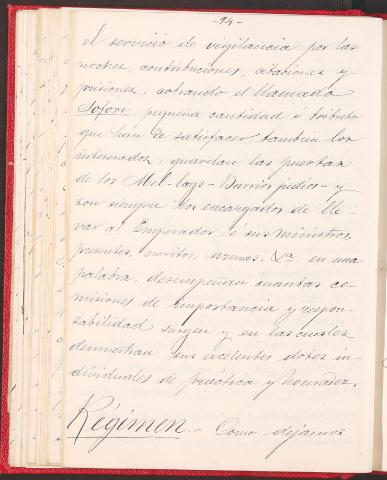 -14-
el servicio de vigilancia por las
noches, contribuciones, citaciones y
prisiones, cobrando el llamado
Sofore pequeña cantidad o tributo
que han de satisfacer tambien los
interesados, guardan las puertas
de los Mel-lags - Barrios judios - y
son siempre los encargados de lle-
var al Emperador, ó sus ministros,
presentes, escritos, armas, &ra en una
palabra, desempeñan cuantas co-
misiones de importancia y respon-
sabilidad surgen y en las cuales
demuestran sus excelentes dotes in-
dividuales de practica y honradez.
Régimen.- Como dejamos